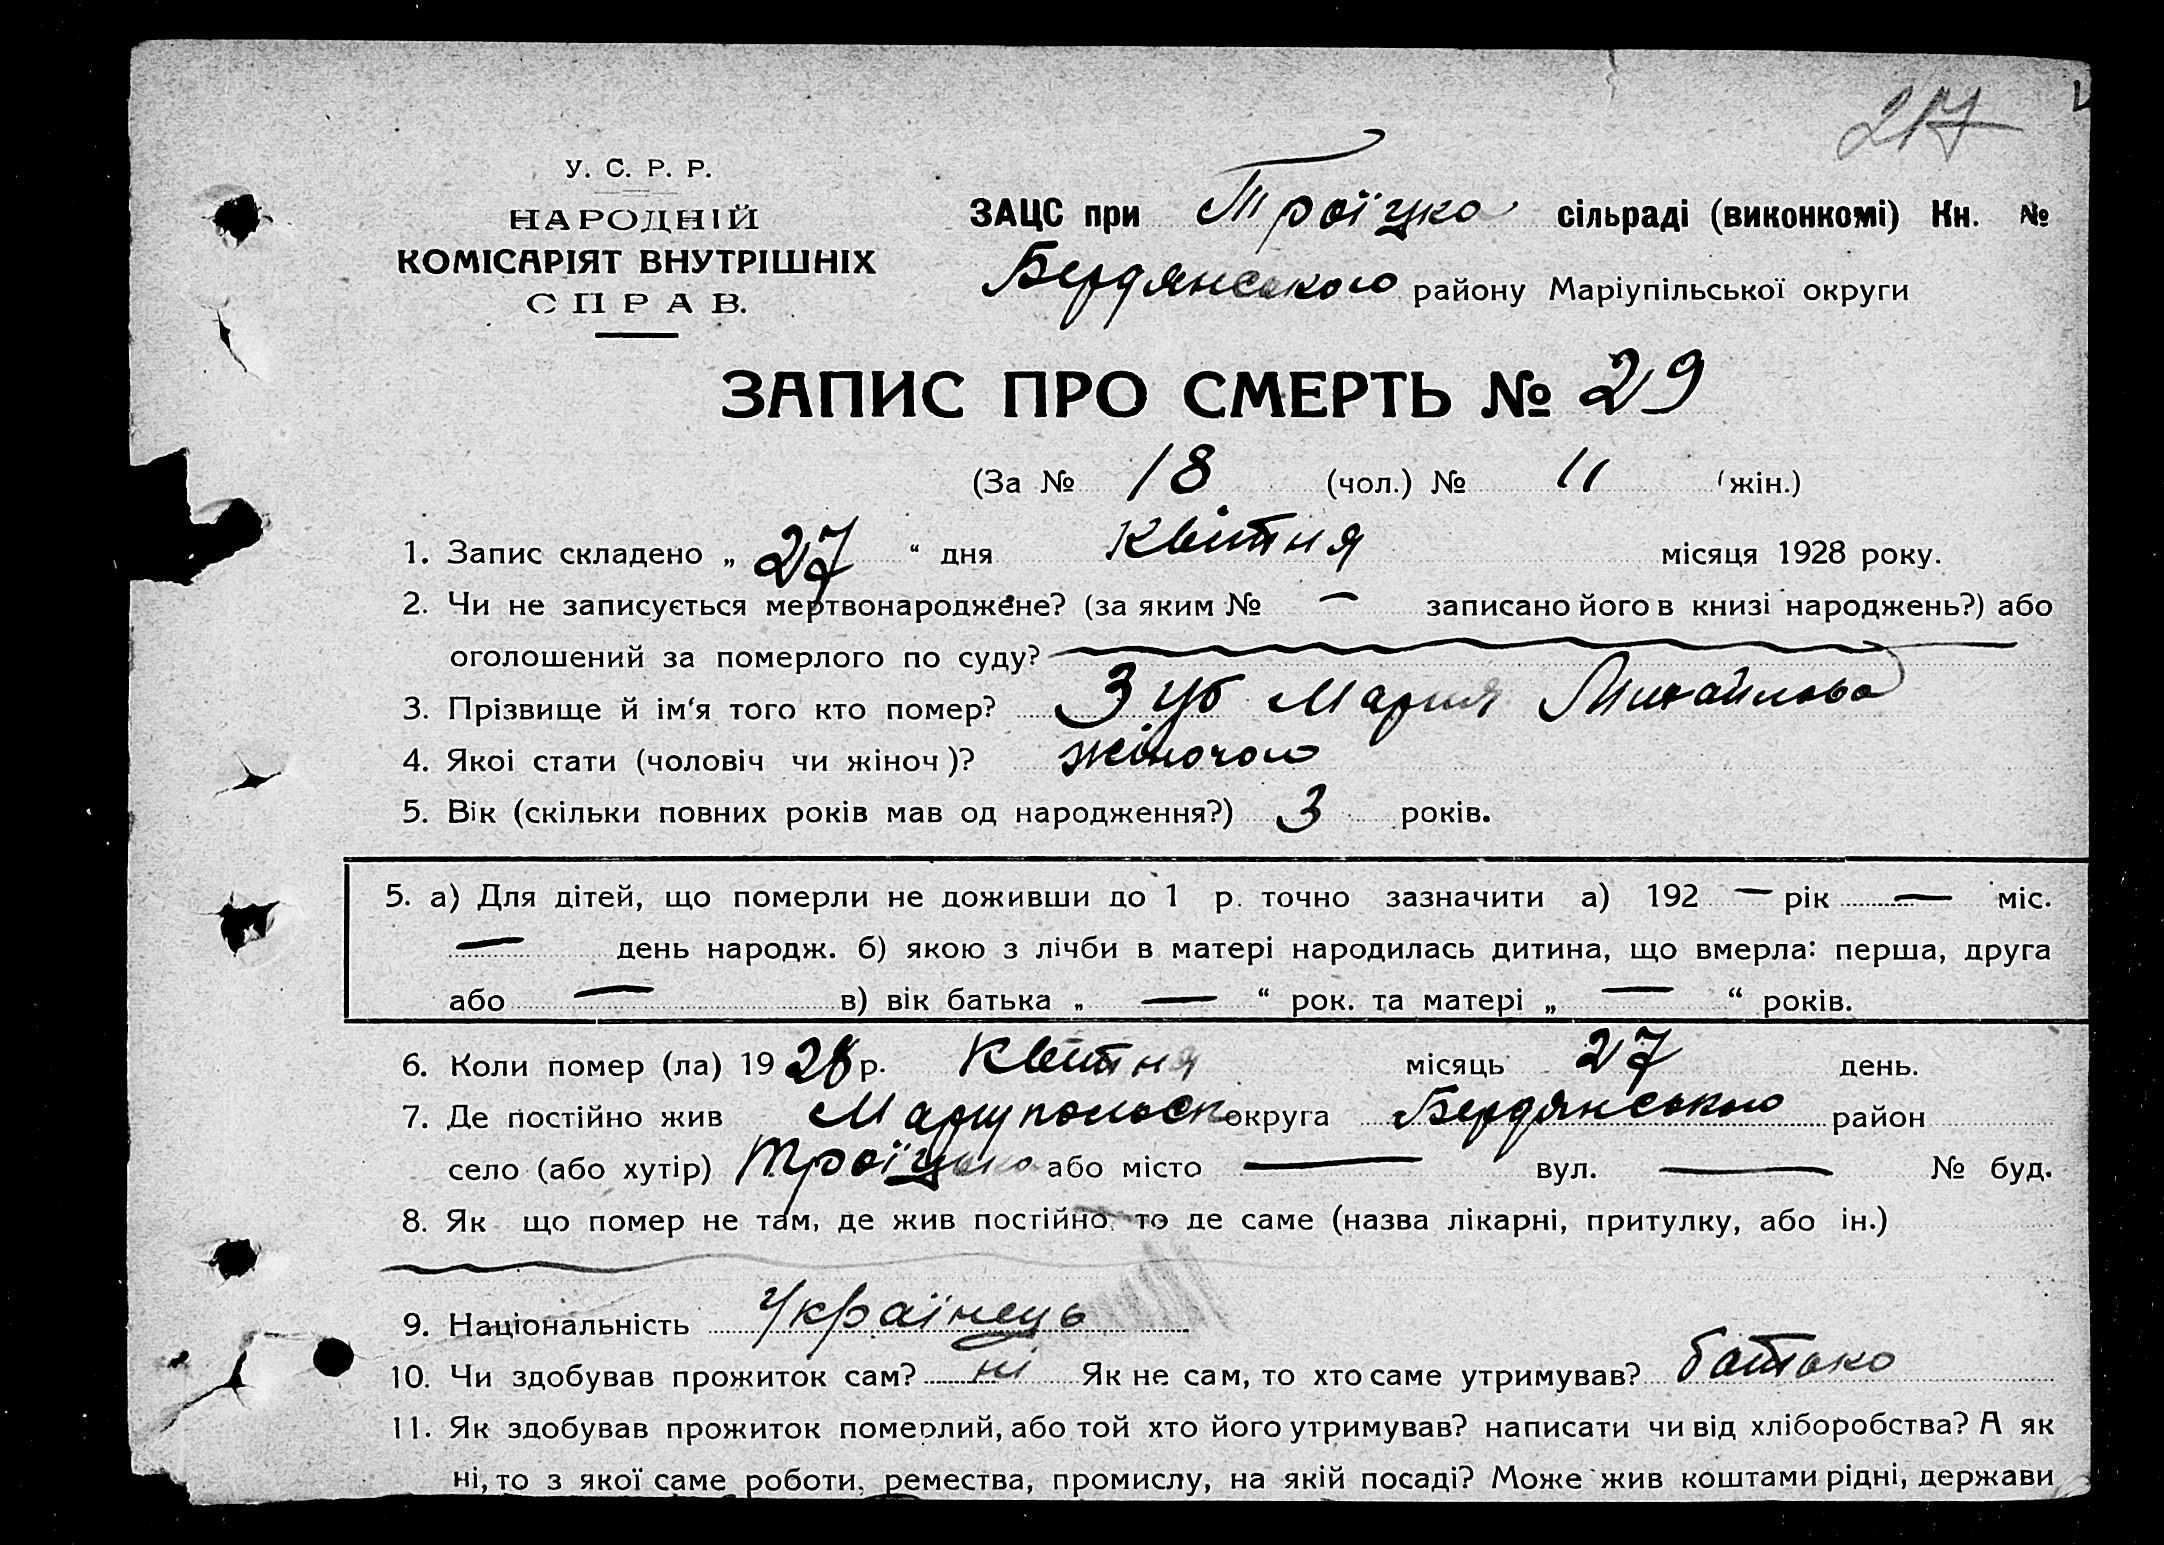 217
У. С. Р. Р.
НАРОДНІЙ
КОМІСАРІЯТ ВНУТРІШНІХ
СПРАВ.
ЗАЦС при Троїцко сільраді (виконкомі) Кн. №
Бердянського району Маріупільської округи
ЗАПИС ПРО СМЕРТЬ № 29
(За № 18 (чол.) № 11 (жін.)
1. Запис складено „ 27 “ дня Квітня місяця 1928 року.
2. Чи не записується мертвонароджене? (за яким № — записано його в книзі народжень?) або
оголошений за померлого по суду?
3. Прізвище й ім‘я того кто помер? Зуб Мария Михайлова
4. Якоі стати (чоловіч чи жіноч)? жіночою
5. Вік (скільки повних років мав од народження?) 3 років.
5. а) Для дітей, що померли не доживши до 1 р. точно зазначити а) 192 — рік — міс.
— день народж. б) якою з лічби в матері народилась дитина, що вмерла: перша, друга
або — в) вік батька „ — “ рок. та матері „ — “ років.
6. Коли помер (ла) 1928 р. Квітня місяць 27 день.
7. Де постійно жив Маріупольськ округа Бердянського район
село (або хутір) Троїцько або місто — вул. — № буд.
8. Як що помер не там, де жив постійно, то де саме (назва лікарні, притулку, або ін.)
9. Національність Українець
10. Чи здобував прожиток сам? ні Як не сам, то хто саме утримував? батько
11. Як здобував прожиток померлий, або той хто його утримував? написати чи від хліборобства? А як
ні, то з якої саме роботи, ремества, промислу, на якій посаді? Може жив коштами рідні, держави